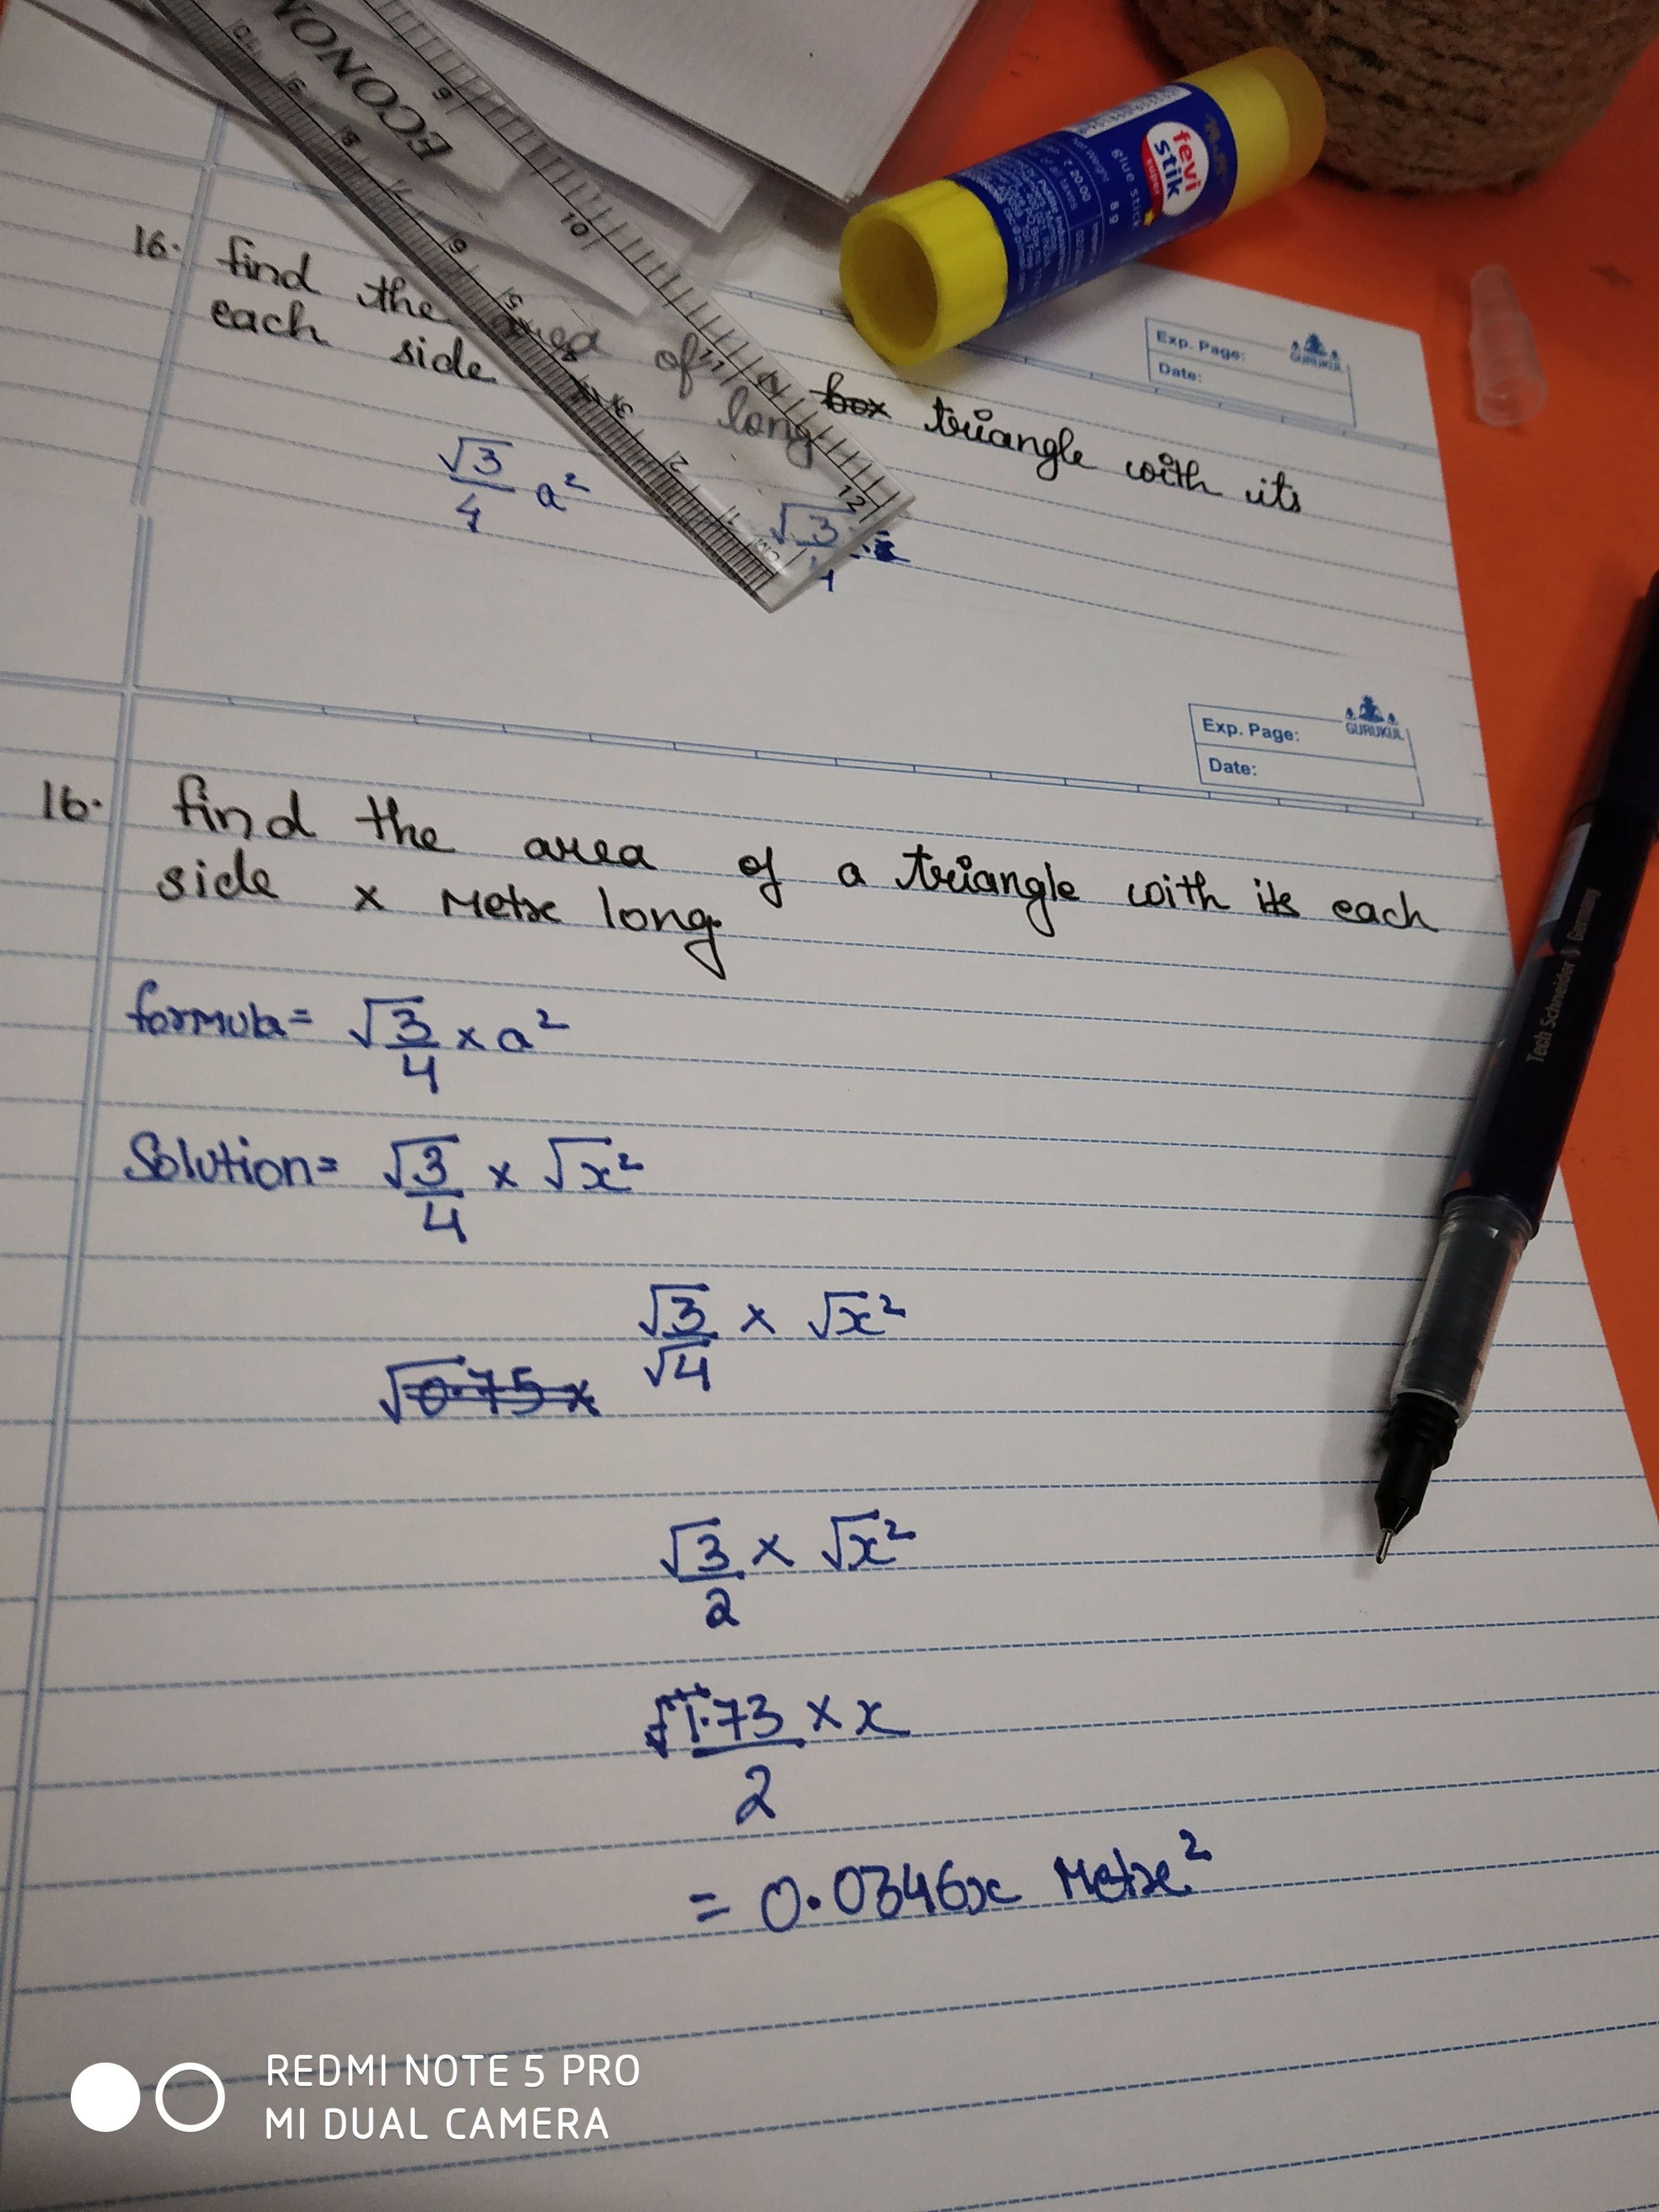 ECONO
10 9 8 7 6 5 2 1
9 10 11 12
fevi
stik
super
glue stick
8 g
₹ 20.00
16. find the area of box triangle with its
each side long
√3/4 a²
√3/4
Exp. Page:
Date:
GURUKUL
Exp. Page:
Date:
GURUKUL
16. find the area of a triangle with its each
side x Metre long.
formula= √3/4 × a²
Solution= √3/4 × √x²
√3/√4 × √x²
√0.75 x
√3/2 × √x²
1.73/2 × x
= 0.0346x Metre²
Tech Schneider Germany
REDMI NOTE 5 PRO
MI DUAL CAMERA